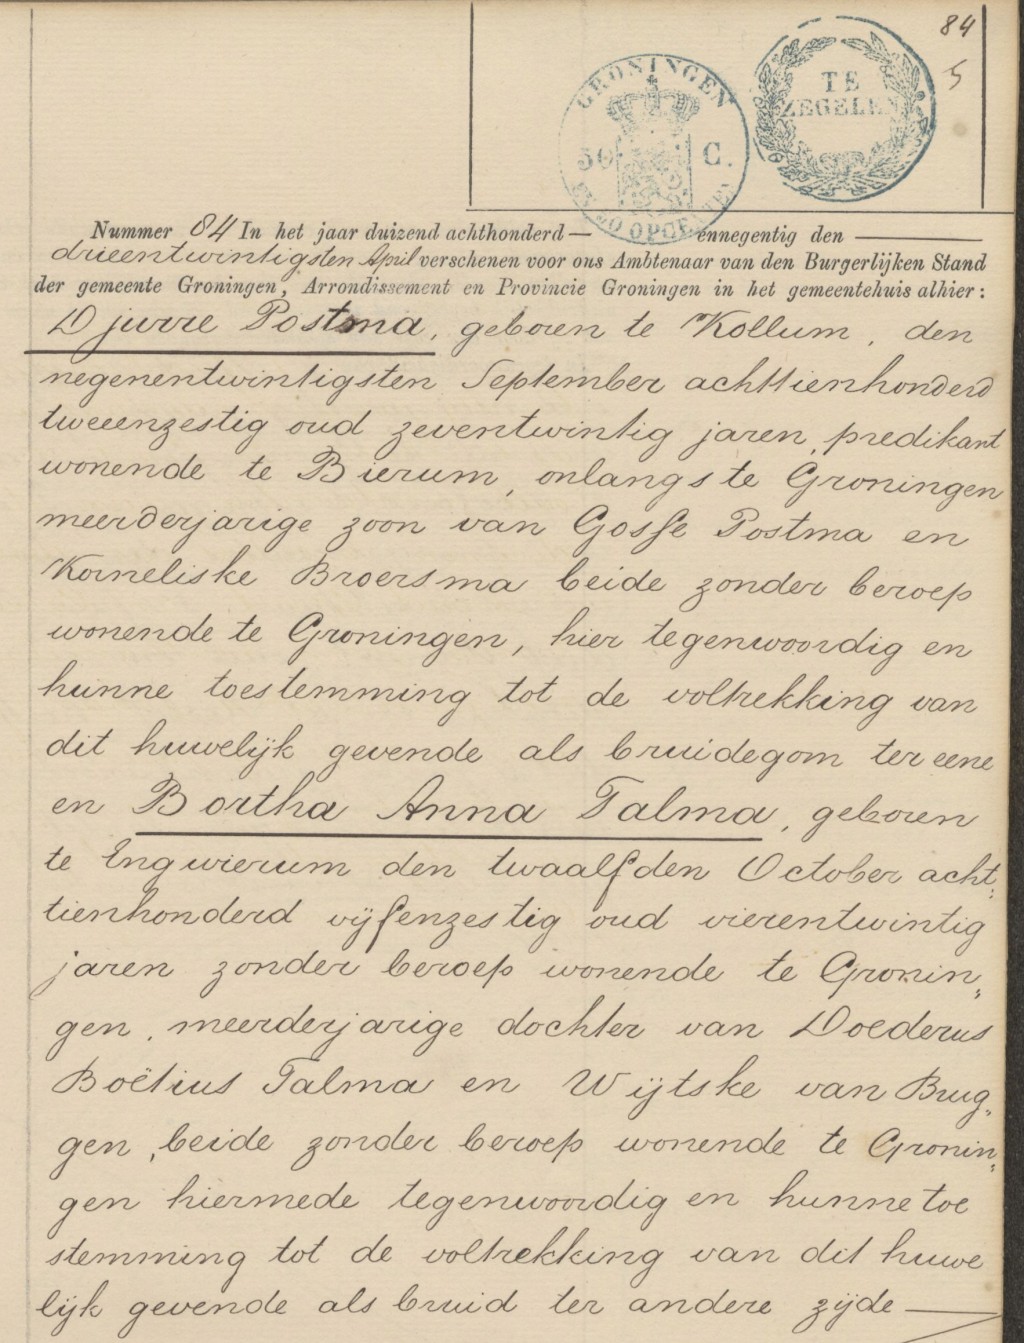 84
5
GRONINGEN
50 C.
EN 20 OPCENTEN
TE
ZEGELEN
Nummer 84 In het jaar duizend achthonderd — ennegentig den —
drieentwintigsten April verschenen voor ons Ambtenaar van den Burgerlijken Stand
der gemeente Groningen, Arrondissement en Provincie Groningen in het gemeentehuis alhier:
Djurre Postma, geboren te Kollum, den
negenentwintigsten September achttienhonderd
tweeenzestig oud zeventwintig jaren, predikant
wonende te Bierum, onlangs te Groningen
meerderjarige zoon van Gosse Postma en
Korneliske Broersma beide zonder beroep
wonende te Groningen, hier tegenwoordig en
hunne toestemming tot de voltrekking van
dit huwelijk gevende als bruidegom ter eene
en Bortha Anna Talma, geboren
te Engwierum den twaalfden October acht:
tienhonderd vijfenzestig oud vierentwintig
jaren zonder beroep wonende te Gronin„
gen, meerderjarige dochter van Doederus
Boëtius Talma en Wijtske van Brug„
gen, beide zonder beroep wonende te Gronin„
gen hiermede tegenwoordig en hunne toe
stemming tot de voltrekking van dit huwe
lijk gevende als bruid ter andere zijde —